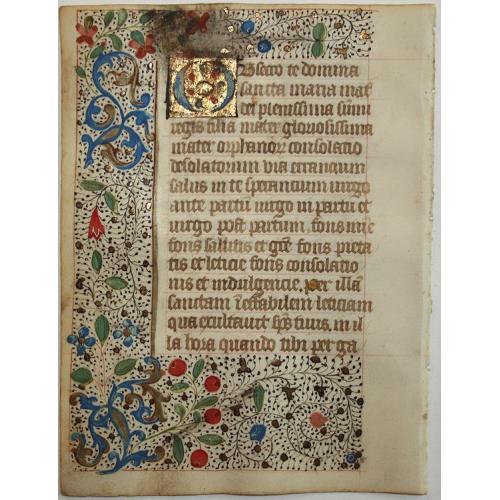 Obsecro te domina
sancta maria mat
dei plenissima sūmi
regis filia mater gloriosissima
mater orphanoꝝ consolatio
desolatorum via errancium
salus in te sperancium uirgo
ante partū uirgo in partu et
uirgo post partum, fons mīe
fons salutis et grē fons pieta
tis et leticie fons consolatio
nis et indulgencie. per illā
sanctam īeffabilem leticiam
qua exultauit sp̄s tuus, in il
la hora quando tibi per ga